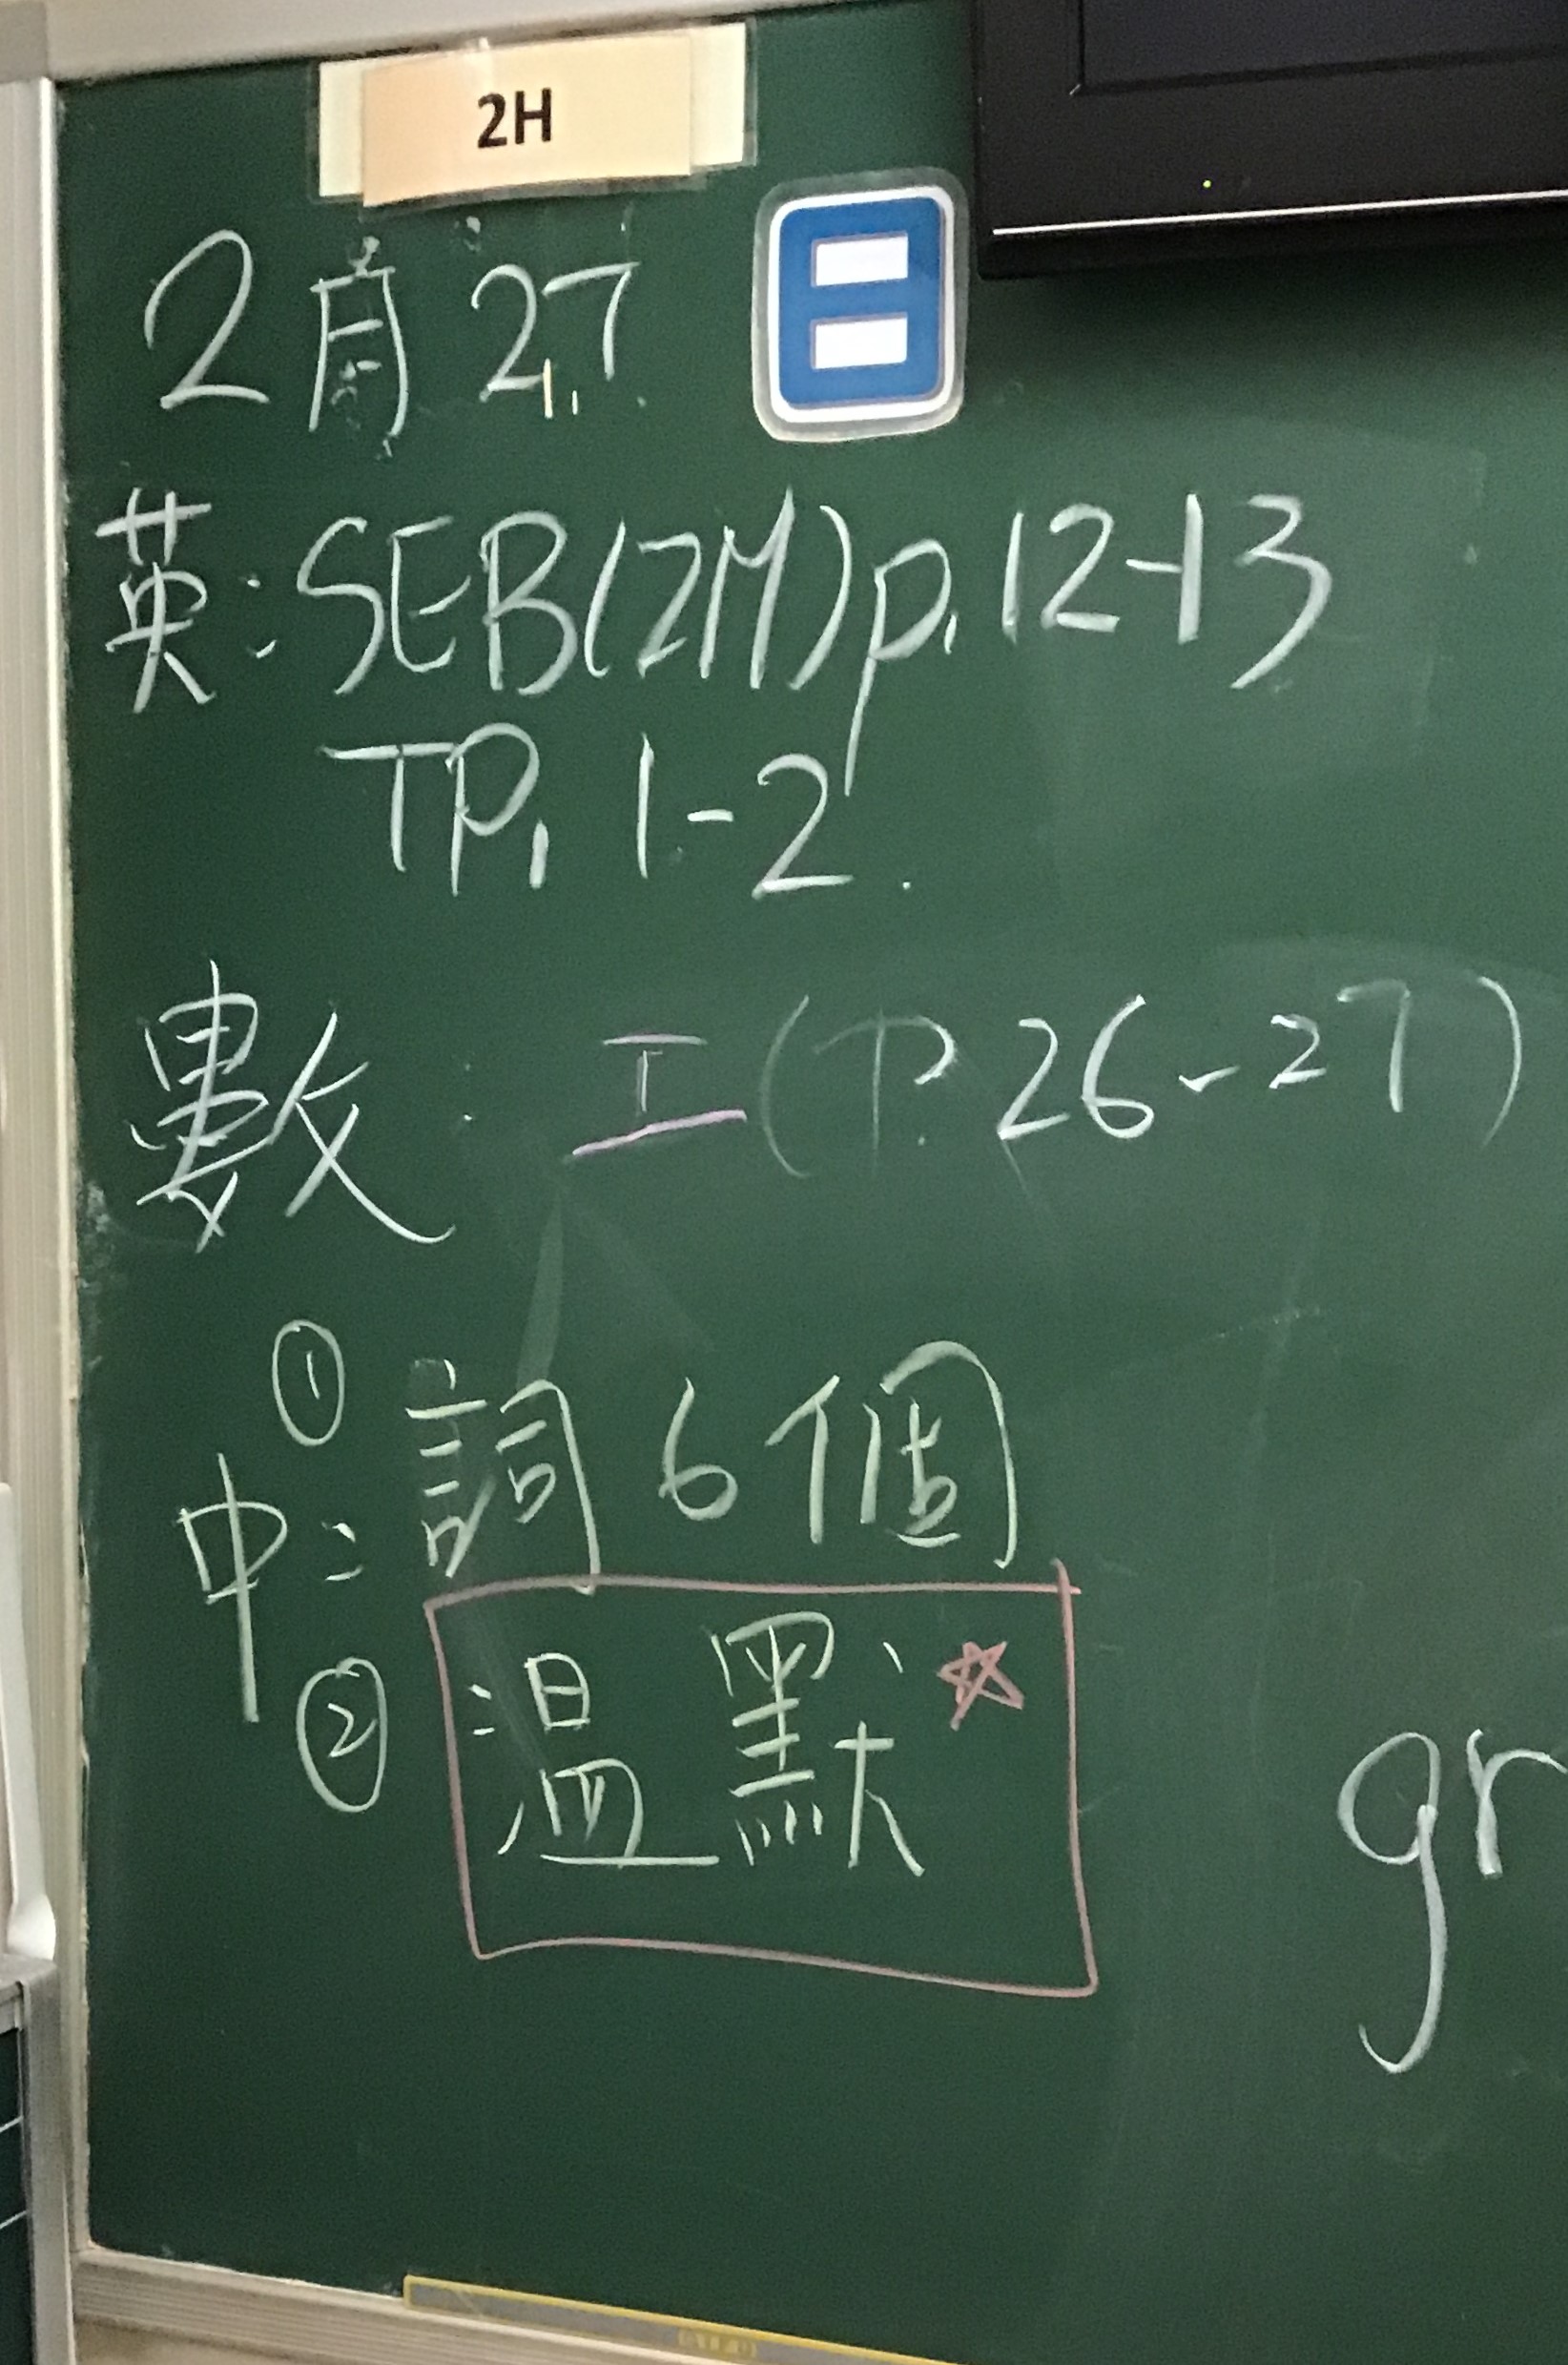 2H
2月27日
英:SEB(2M)p.12-13
TP. 1-2
數:工(P.26-27)
中:①詞6個
②溫默
gr